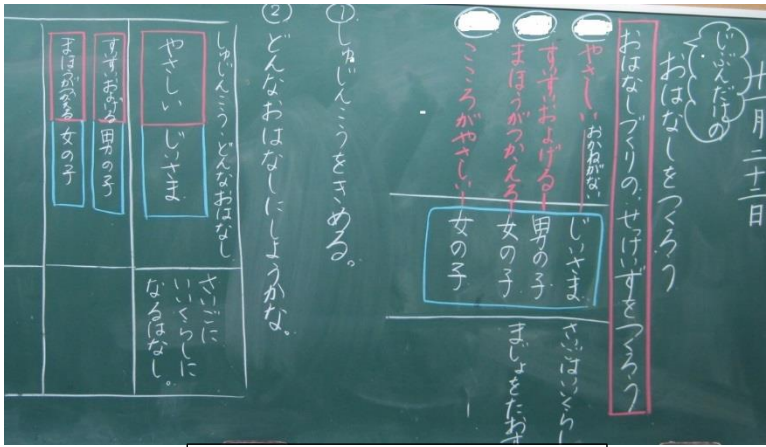 十一月二十二日
じぶんだけの
おはなしをつくろう
おはなしづくりの、せっけいずをつくろう
やさしい おかねがない じいさま さいはいいくらし
すいすいおよげる 男の子
まほうがつかえる 女の子 まじょをたおす
こころがやさしい 女の子
① しゅじんこうをきめる。
② どんなおはなしにしようかな。
しゅじんこう・どんなおはなし
やさしい じいさま
さいごに
いいくらしに
なるはなし。
すいすいおよげる 男の子
まほうがつかえる 女の子